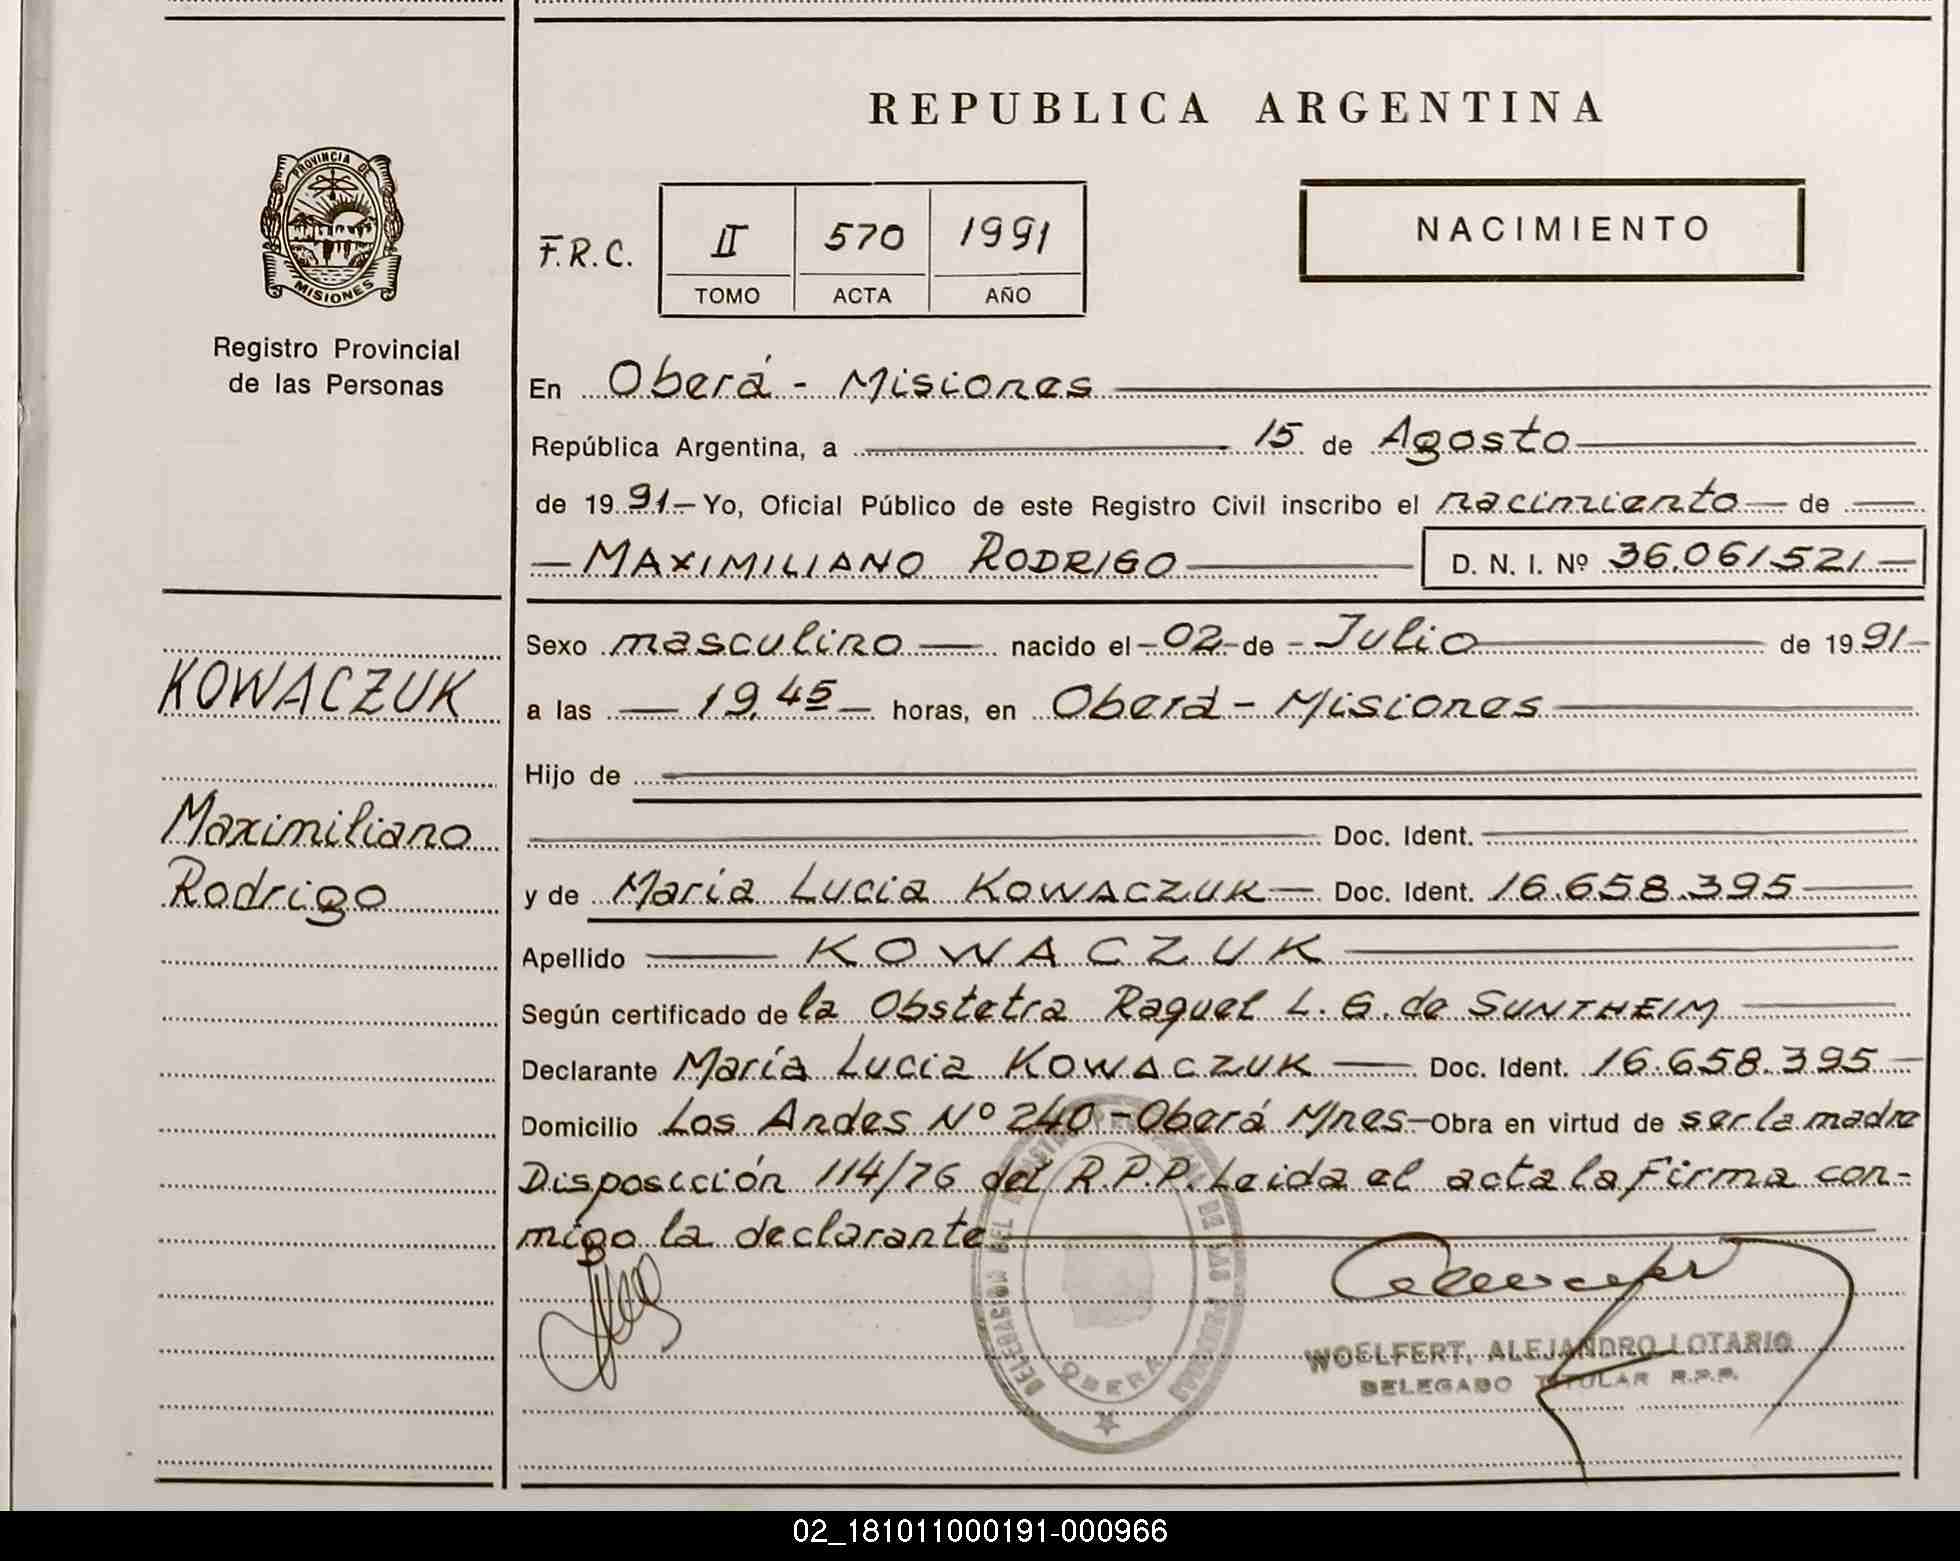 REPUBLICA ARGENTINA
PROVINCIA DE
MISIONES
Registro Provincial
de las Personas
F.R.C.
II 570 1991
TOMO ACTA AÑO
NACIMIENTO
En Oberá - Misiones
República Argentina, a 15 de Agosto
de 1991- Yo, Oficial Público de este Registro Civil inscribo el nacimiento de
MAXIMILIANO RODRIGO D. N. I. Nº 36.061.521
KOWACZUK
Maximiliano
Rodrigo
Sexo masculino nacido el 02 de Julio de 1991
a las 19,45 horas, en Oberá - Misiones
Hijo de
Doc. Ident.
y de María Lucia KOWACZUK Doc. Ident. 16.658.395
Apellido KOWACZUK
Según certificado de la Obstetra Raquel L. G. de SUNTHEIM
Declarante María Lucia KOWACZUK Doc. Ident. 16.658.395
Domicilio Los Andes Nº 240 - Oberá Mnes - Obra en virtud de ser la madre
Disposición 114/76 del R.P.P. Leida el acta la firma con-
migo la declarante
DELEGACION DEL
DE LAS PERSONAS
OBERA
WOELFERT, ALEJANDRO LOTARIO
DELEGADO TITULAR R.P.P.
02_181011000191-000966